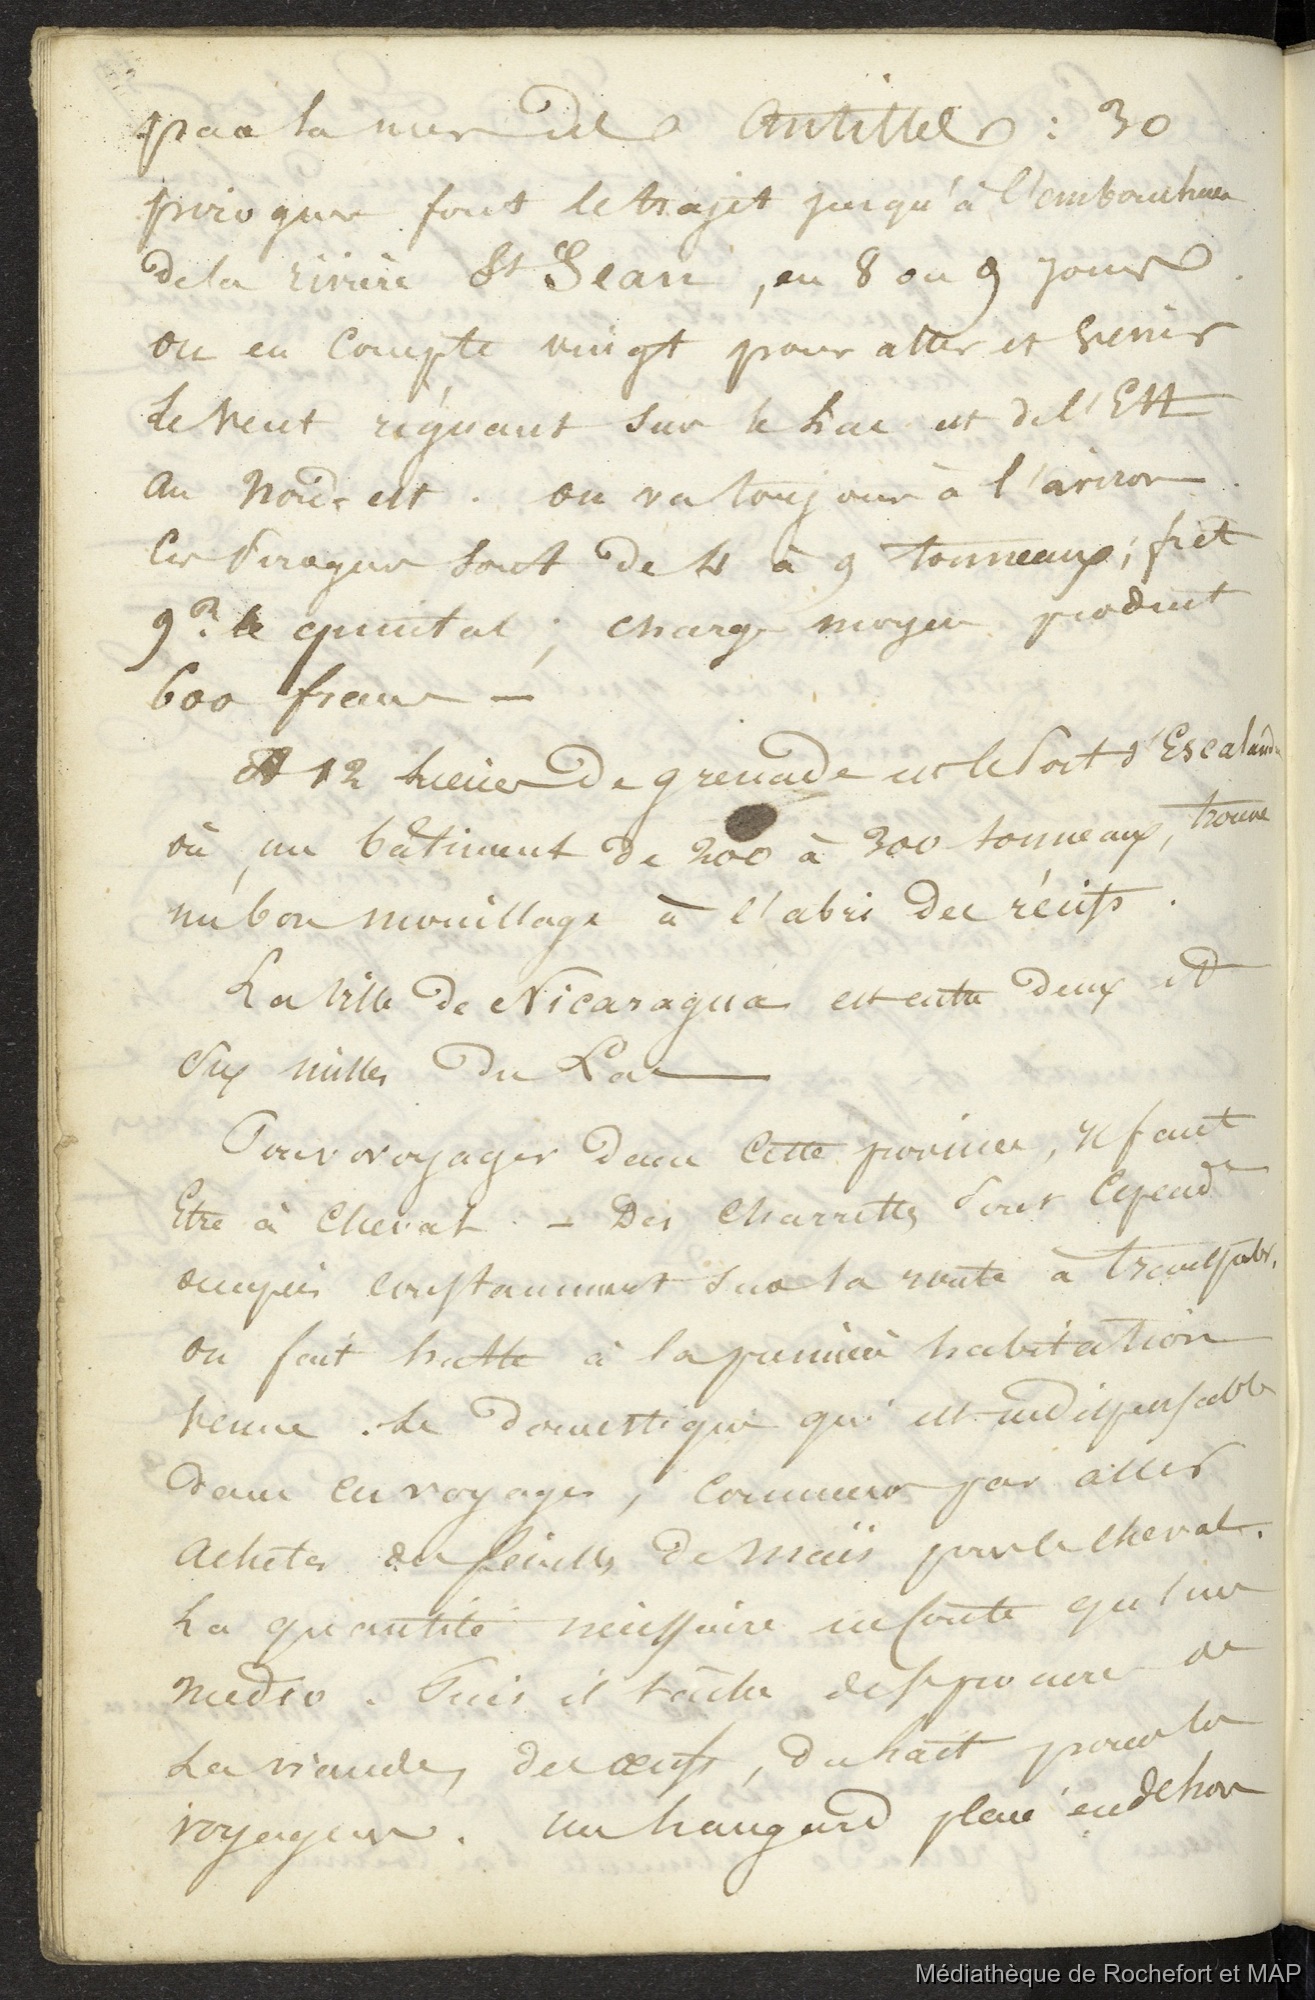 par la mer des Antilles : 30
pirogues font le trajet jusqu'à l'embouchure
de la rivière St Jean, en 8 ou 9 jours
on en compte vingt pour aller et venir
Le vent régnant sur le Lac est de l'Est
au Nord-est. on va toujours à l'aviron.
Ces Pirogues sont de 4 à 9 tonneaux ; frèt
9 r. le quintal ; charge moyen produit
600 francs —
A 12 lieues de grenade est le Port d'Escalande
où, un bâtiment de 200 à 300 tonneaux, trouve
un bon mouillage à l'abri des récifs.
La Ville de Nicaragua est entre deux et
Six milles du Lac —
Pour voyager dans Cette province, il faut
Etre à Cheval. — Des Charrettes sont Cepend.t
occupées constamment sur la route à transporter.
on fait halte à la première habitation
venue. Le domestique qui est indispensable
dans ces voyages, commence par aller
acheter des feuilles de Maïs pour le cheval.
La quantité nécessaire ne coute qu'un
medio. Puis il tâche de se procurer de
La viande, des œufs, du lait pour le
voyageur. un hangard placé en dehors
Médiathèque de Rochefort et MAP